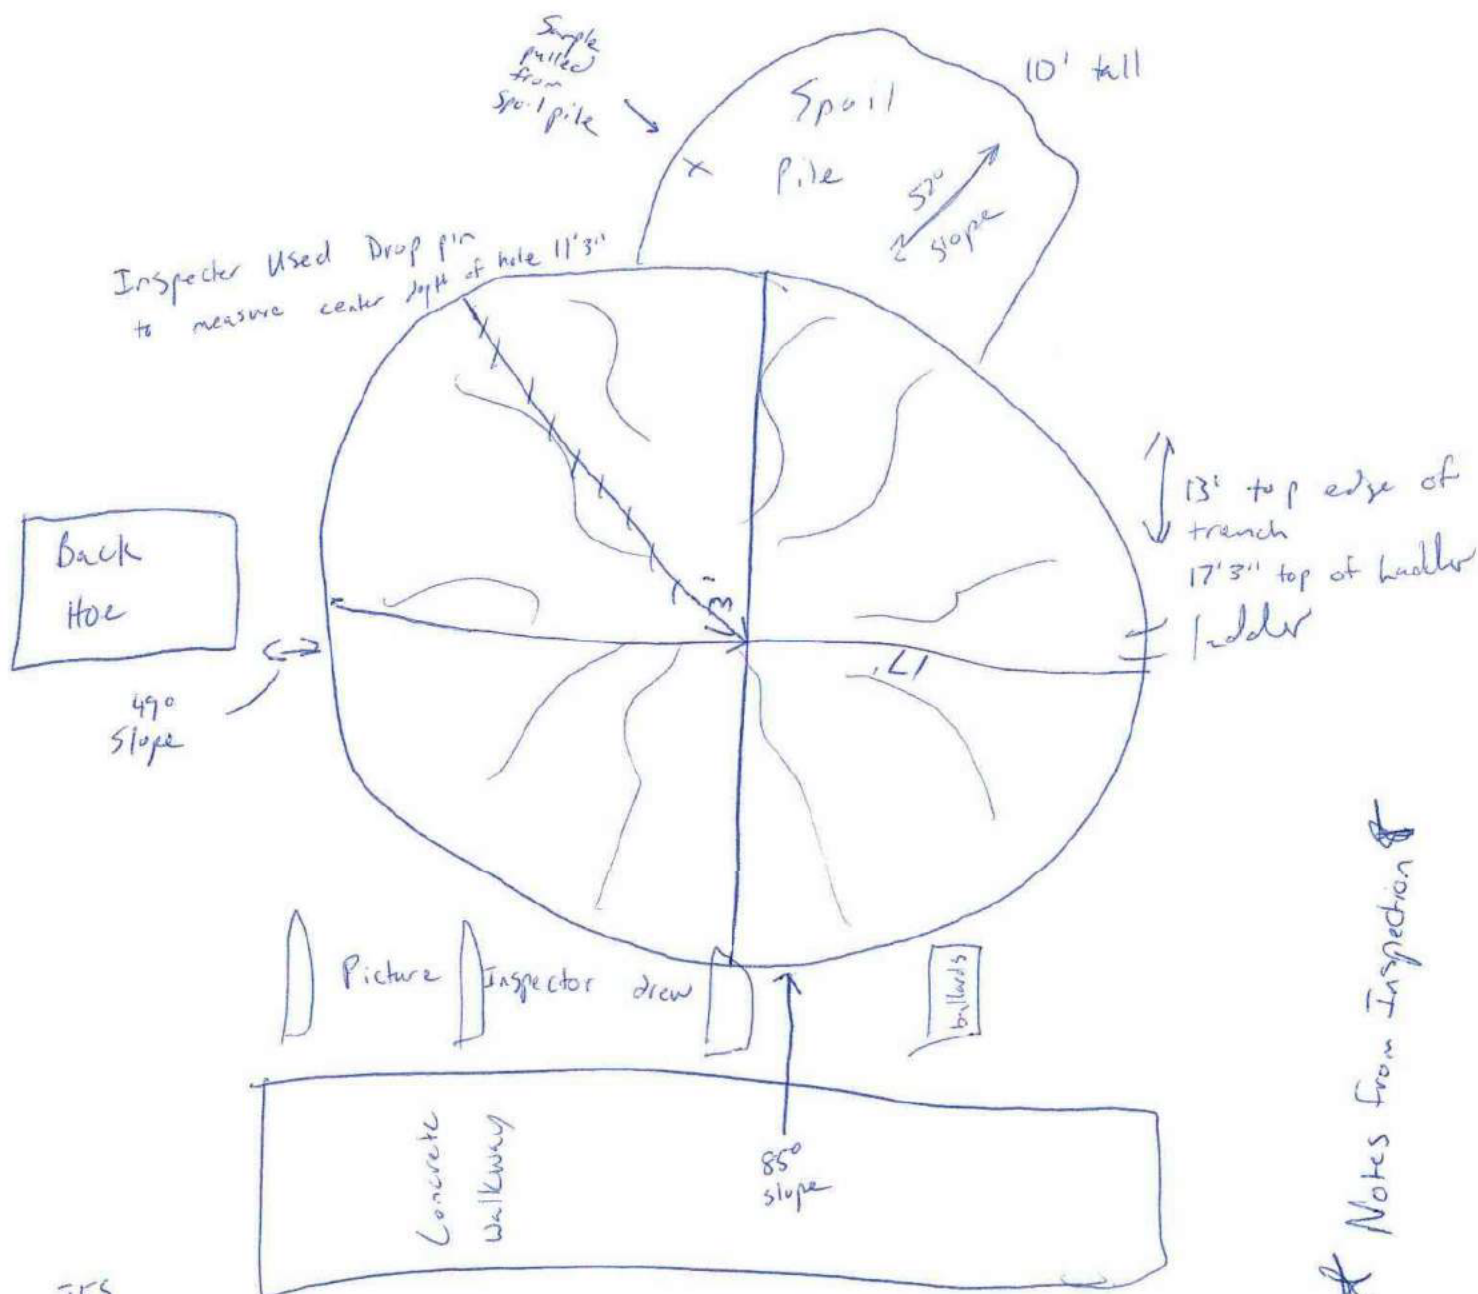 Sample
pulled
from
Spoil pile
10' tall
Spoil
Pile
52°
slope
Inspecter Used Drop pin
to measure center depth of hole 11'3"
13' top edge of
trench
17'3" top of Ladder
ladder
Back
Hoe
49°
Slope
13'
17'
Picture Inspector drew
bullards
Concrete
Walkway
85°
slope
* Notes from Inspection *